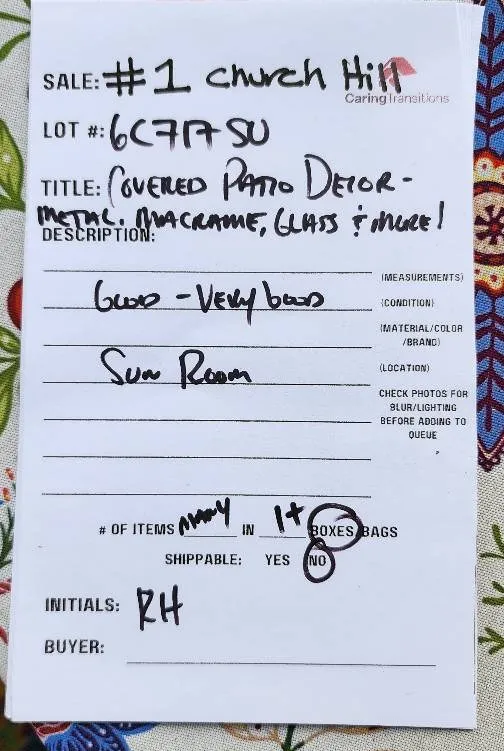 SALE: #1 Church Hill
CaringTransitions
LOT #: 6C717SU
TITLE: COVERED PATIO DECOR -
METAL, MACRAME, GLASS & MORE!
DESCRIPTION:
(MEASUREMENTS)
GOOD - VERY GOOD (CONDITION)
(MATERIAL/COLOR
/BRAND)
SUN ROOM (LOCATION)
CHECK PHOTOS FOR
BLUR/LIGHTING
BEFORE ADDING TO
QUEUE
# OF ITEMS MANY IN 1+ BOXES/BAGS
SHIPPABLE: YES NO
INITIALS: RH
BUYER: